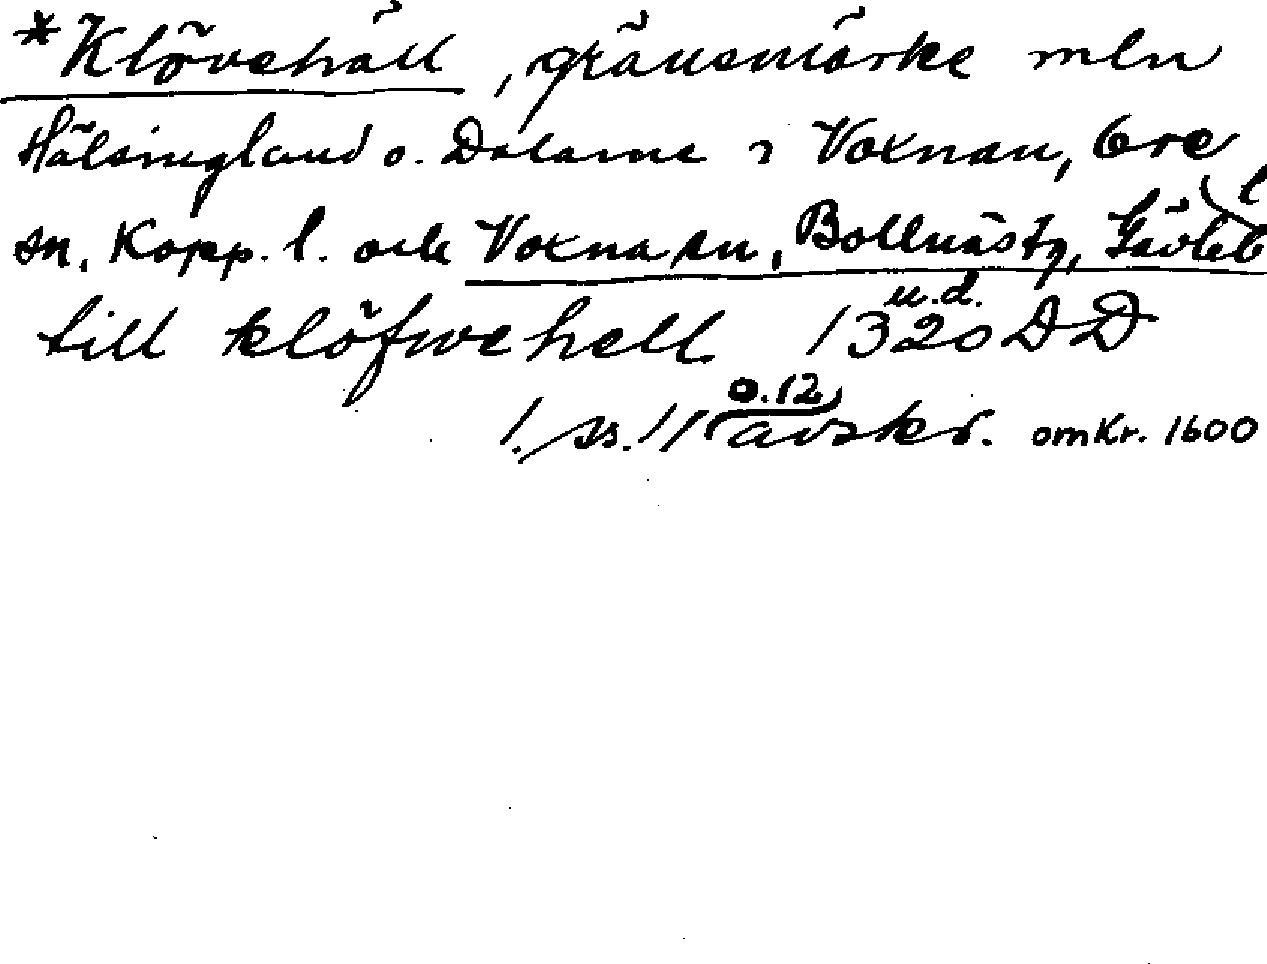 *Klövehäll, gränsmärke mln
Hälsingland o. Dalarne i Voxnan, Ore
sn, Kopp. l. och Voxna sn, Bollnäs tg, Gävleb l
till klöfwe hell 1320 u.d. DD
1. s. 11 o. 12 avskr. omkr. 1600